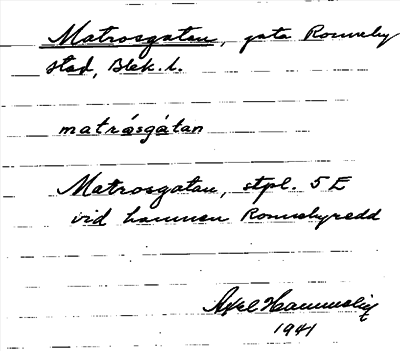 Matrosgatan, gata Ronneby
stad, Blek. l.
matråsgàtan
Matrosgatan, stpl. 5 E
vid hamnen Ronnebyredd
Axel
1941